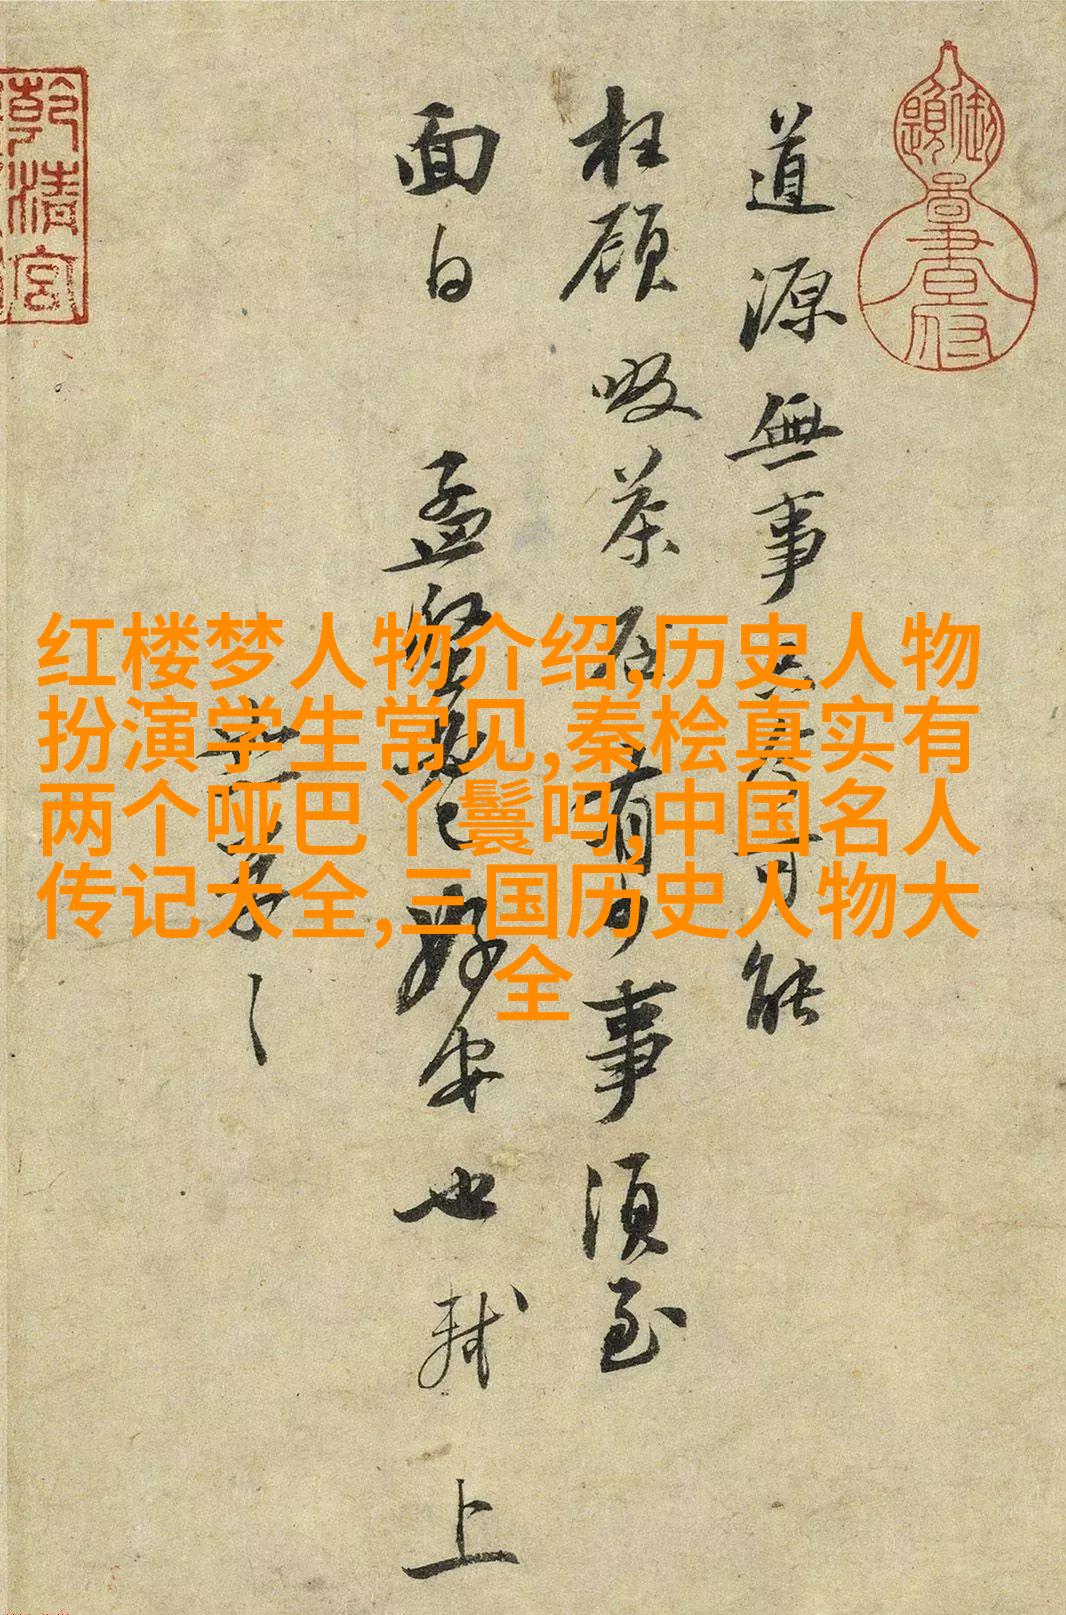 道源無事
能
枉顧啜茶否有少事須至
面白 孟堅 好安也軾
上
紅楼梦人物介绍,历史人物
扮演学生常见,秦桧真实有
两个哑巴丫鬟吗,中国名人
传记大全,三国历史人物大
全
乾清宮
御題
畫書府